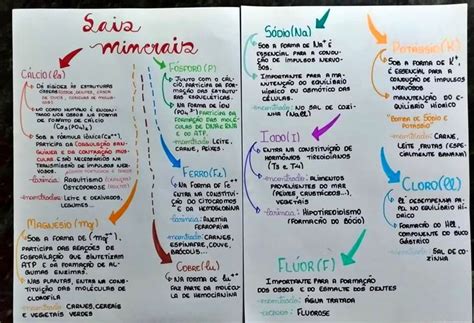 Sais
minerais
CÁLCIO (Ca)
DÁ RIGIDEZ ÀS ESTRUTURAS
NO CORPO HUMANO É ENCONTRADO NOS OSSOS NA FORMA
DE FOSFATO DE CÁLCIO
SOB A FORMA IÔNICA (Ca++),
PARTICIPA DA COAGULAÇÃO SANGUÍNEA E DA CONTRAÇÃO MUSCULAR
E SÃO NECESSÁRIOS NA
TRANSMISSÃO DE IMPULSOS NERVOSOS.
carência: RAQUITISMO
OSTEOPOROSE
encontrado: LEITE E DERIVADOS,
LEGUMES...
MAGNÉSIO (Mg)
SOB A FORMA DE (Mg++),
PARTICIPA DAS REAÇÕES DE
FOSFORILAÇÃO QUE SINTETIZAM
ATP E DA FORMAÇÃO DE
ALGUMAS ENZIMAS.
NAS PLANTAS, ENTRA NA CONSTITUIÇÃO DAS MOLÉCULAS DE
CLOROFILA
encontrado: CARNES, CEREAIS
E VEGETAIS VERDES
FÓSFORO (P)
JUNTO COM O CÁLCIO, PARTICIPA DA FORMAÇÃO DAS ESTRUTURAS
ESQUELÉTICAS.
NA FORMA DE ÍON
PARTICIPA DA
FORMAÇÃO DAS MOLÉCULAS
DE DNA E RNA
E DO ATP.
encontrado: LEITE,
CARNE, PEIXES.
FERRO (Fe)
NA FORMA DE
ENTRA NA CONSTITUIÇÃO
DO CITOCROMOS
E DA HEMOGLOBINA
carência: ANEMIA
FERROPRIVA
encontrado: CARNES,
ESPINAFRE, COUVE,
BRÓCOLIS...
COBRE (Cu)
NA FORMA DE Cu++
FAZ PARTE DA MOLÉCULA
DE HEMOCIANINA
SÓDIO (Na)
SOB A FORMA DE Na+ É
ESSENCIAL PARA A CONDUÇÃO
DE IMPULSOS NERVOSOS.
IMPORTANTE PARA A MANUTENÇÃO
DO EQUILÍBRIO HÍDRICO
OU OSMÓTICO DAS
CÉLULAS.
encontrado: NO SAL DE COZINHA
(NaCl)
IODO (I)
ENTRA NA CONSTITUIÇÃO DE
HORMÔNIOS TIREOIDIANOS
encontrado: ALIMENTOS
PROVENIENTES DO MAR
(PEIXES, CRUSTÁCEOS...),
VEGETAIS
carência: HIPOTIREOIDISMO
(FORMAÇÃO DO BÓCIO)
FLÚOR (F)
IMPORTANTE PARA A FORMAÇÃO
DOS OSSOS E DO ESMALTE DOS DENTES
encontrado: ÁGUA TRATADA
excesso: FLUOROSE
POTÁSSIO (K)
SOB A FORMA DE K+,
É ESSENCIAL PARA A
CONDUÇÃO DE IMPULSOS
NERVOSOS
MANUTENÇÃO DO EQUILÍBRIO
HÍDRICO
"BOMBA DE SÓDIO E
POTÁSSIO"
encontrado: CARNE,
LEITE, FRUTAS (ESPECIALMENTE BANANA)
CLORO (Cl)
DESEMPENHA PAPEL
NO EQUILÍBRIO HÍDRICO
FORMAÇÃO DO HCl,
COMPONENTE DO SUCO
GÁSTRICO
encontrado: SAL DE COZINHA